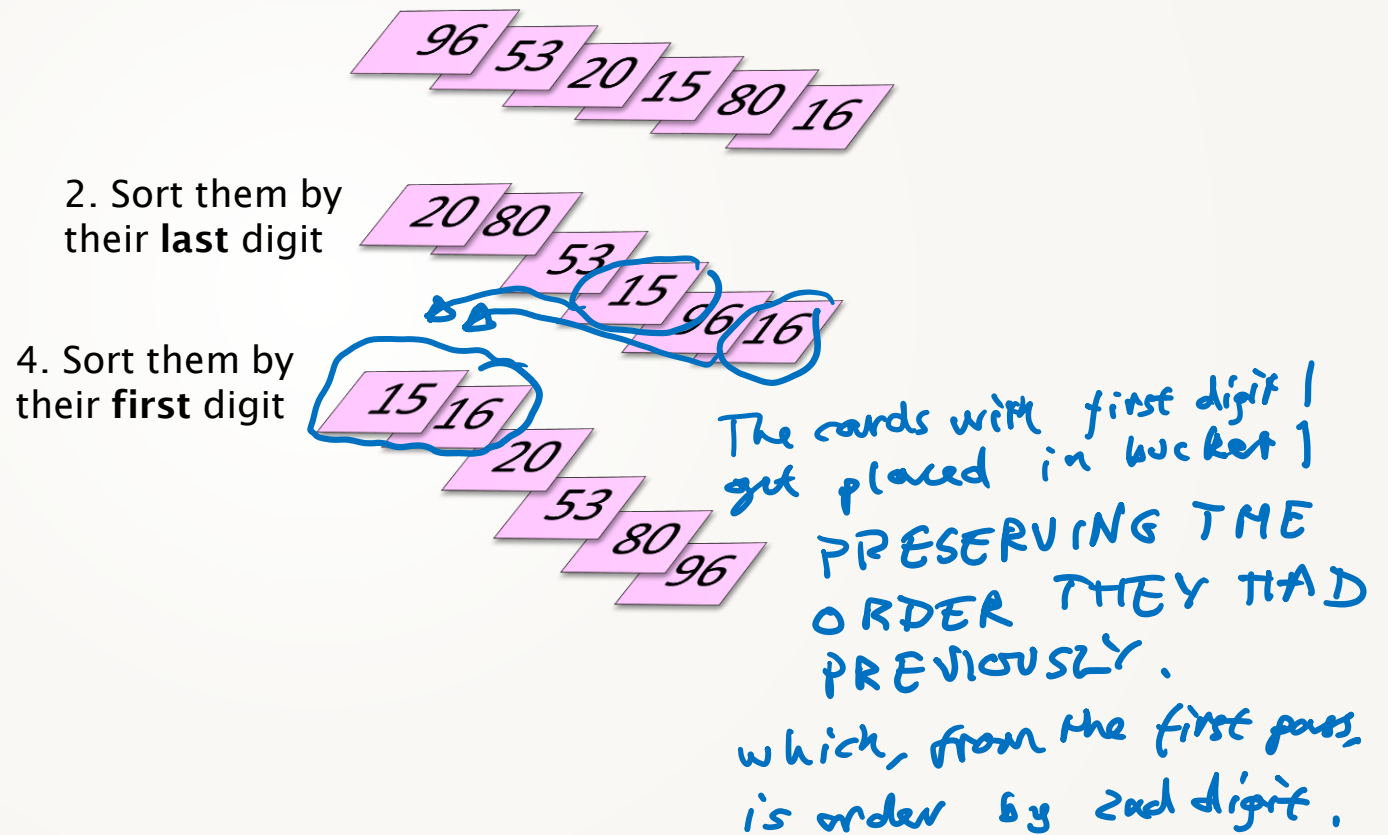 96 53 20 15 80 16
2. Sort them by
their last digit
20 80 53 15 96 16
4. Sort them by
their first digit
15 16 20 53 80 96
The cards with first digit 1
get placed in bucket 1
PRESERVING THE
ORDER THEY HAD
PREVIOUSLY.
which, from the first pass,
is order by 2nd digit.